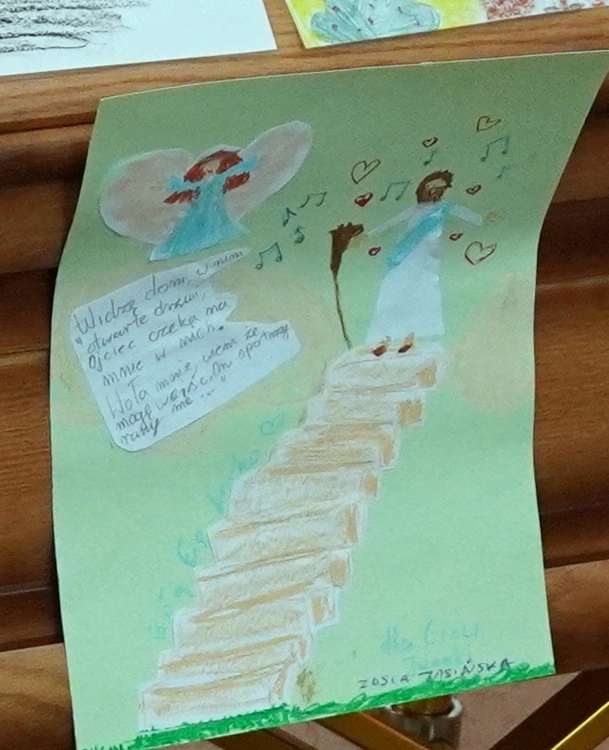 "Widzę dom, w nim
otwarte drzwi,
Ojciec czeka na
mnie w nich.
Woła mnie, wiem że
mogę wejść, On opatrzy
rany me ... "
ZOSIA JASIŃSKA